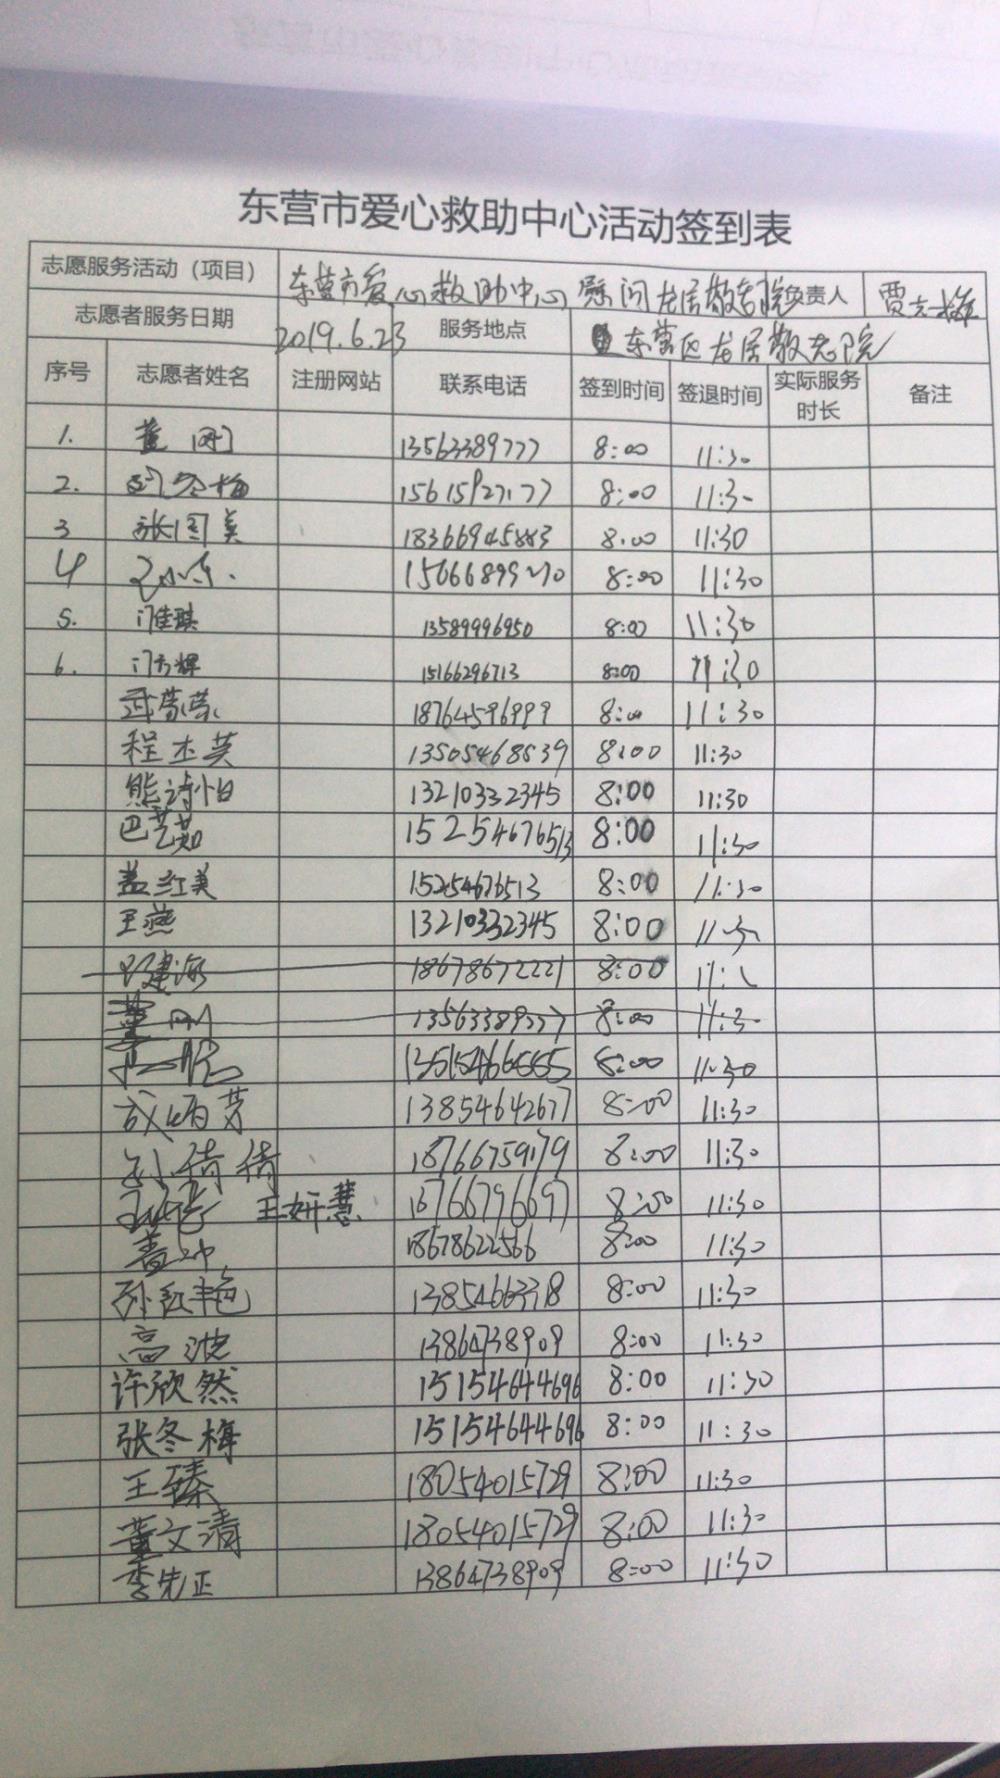 东营市爱心救助中心活动签到表
志愿服务活动（项目） 东营市爱心救助中心慰问龙居敬老院 负责人 贾
志愿者服务日期 2019.6.23 服务地点 东营区龙居敬老院
序号 志愿者姓名 注册网站 联系电话 签到时间 签退时间 实际服务时长 备注
1. 董刚 13563389777 8:00 11:30
2. 8:00 11:30
3 张图美 8:00 11:30
4 8:00 11:30
5. 门佳琪 13589996950 8:00 11:30
6. 门方辉 15166296713 8:00 11:30
武蒙蒙 18764596999 8:00 11:30
程木英 13505468539 8:00 11:30
熊诗怡 13210332345 8:00 11:30
巴艺茹 15254676513 8:00 11:30
盖红美 15254676513 8:00 11:30
王燕 13210332345 8:00 11:30
18678672221 8:00
董刚 13563389777 8:00 11:30
8:00 11:30
成炳芳 13854642677 8:00 11:30
孙倩倩 18766759179 8:00 11:30
王妍慧 8:00 11:30
18678622566 8:00 11:30
孙红艳 8:00 11:30
高波 13864738909 8:00 11:30
许欣然 15154644696 8:00 11:30
张冬梅 15154644696 8:00 11:30
王臻 18054015729 8:00 11:30
董文清 18054015729 8:00 11:30
李先正 13864738909 8:00 11:30